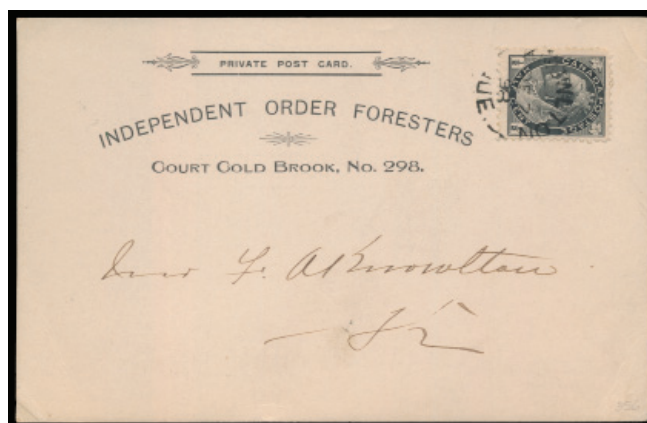 PRIVATE POST CARD.
INDEPENDENT ORDER FORESTERS
COURT COLD BROOK, No. 298.
CANADA
POSTAGE
A Knowlton